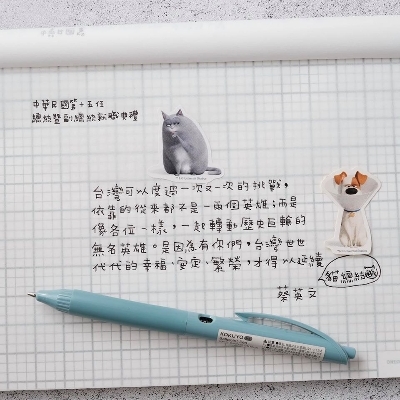 中華民國第十五任
總統暨副總統就職典禮
台灣可以度過一次又一次的挑戰，
依靠的從來都不是一兩個英雄；而是
像各位一樣，一起轉動歷史巨輪的
無名英雄。是因為有你們，台灣世世
代代的幸福、安定、繁榮，才得以延續
貓總統
蔡英文
KOKUYO